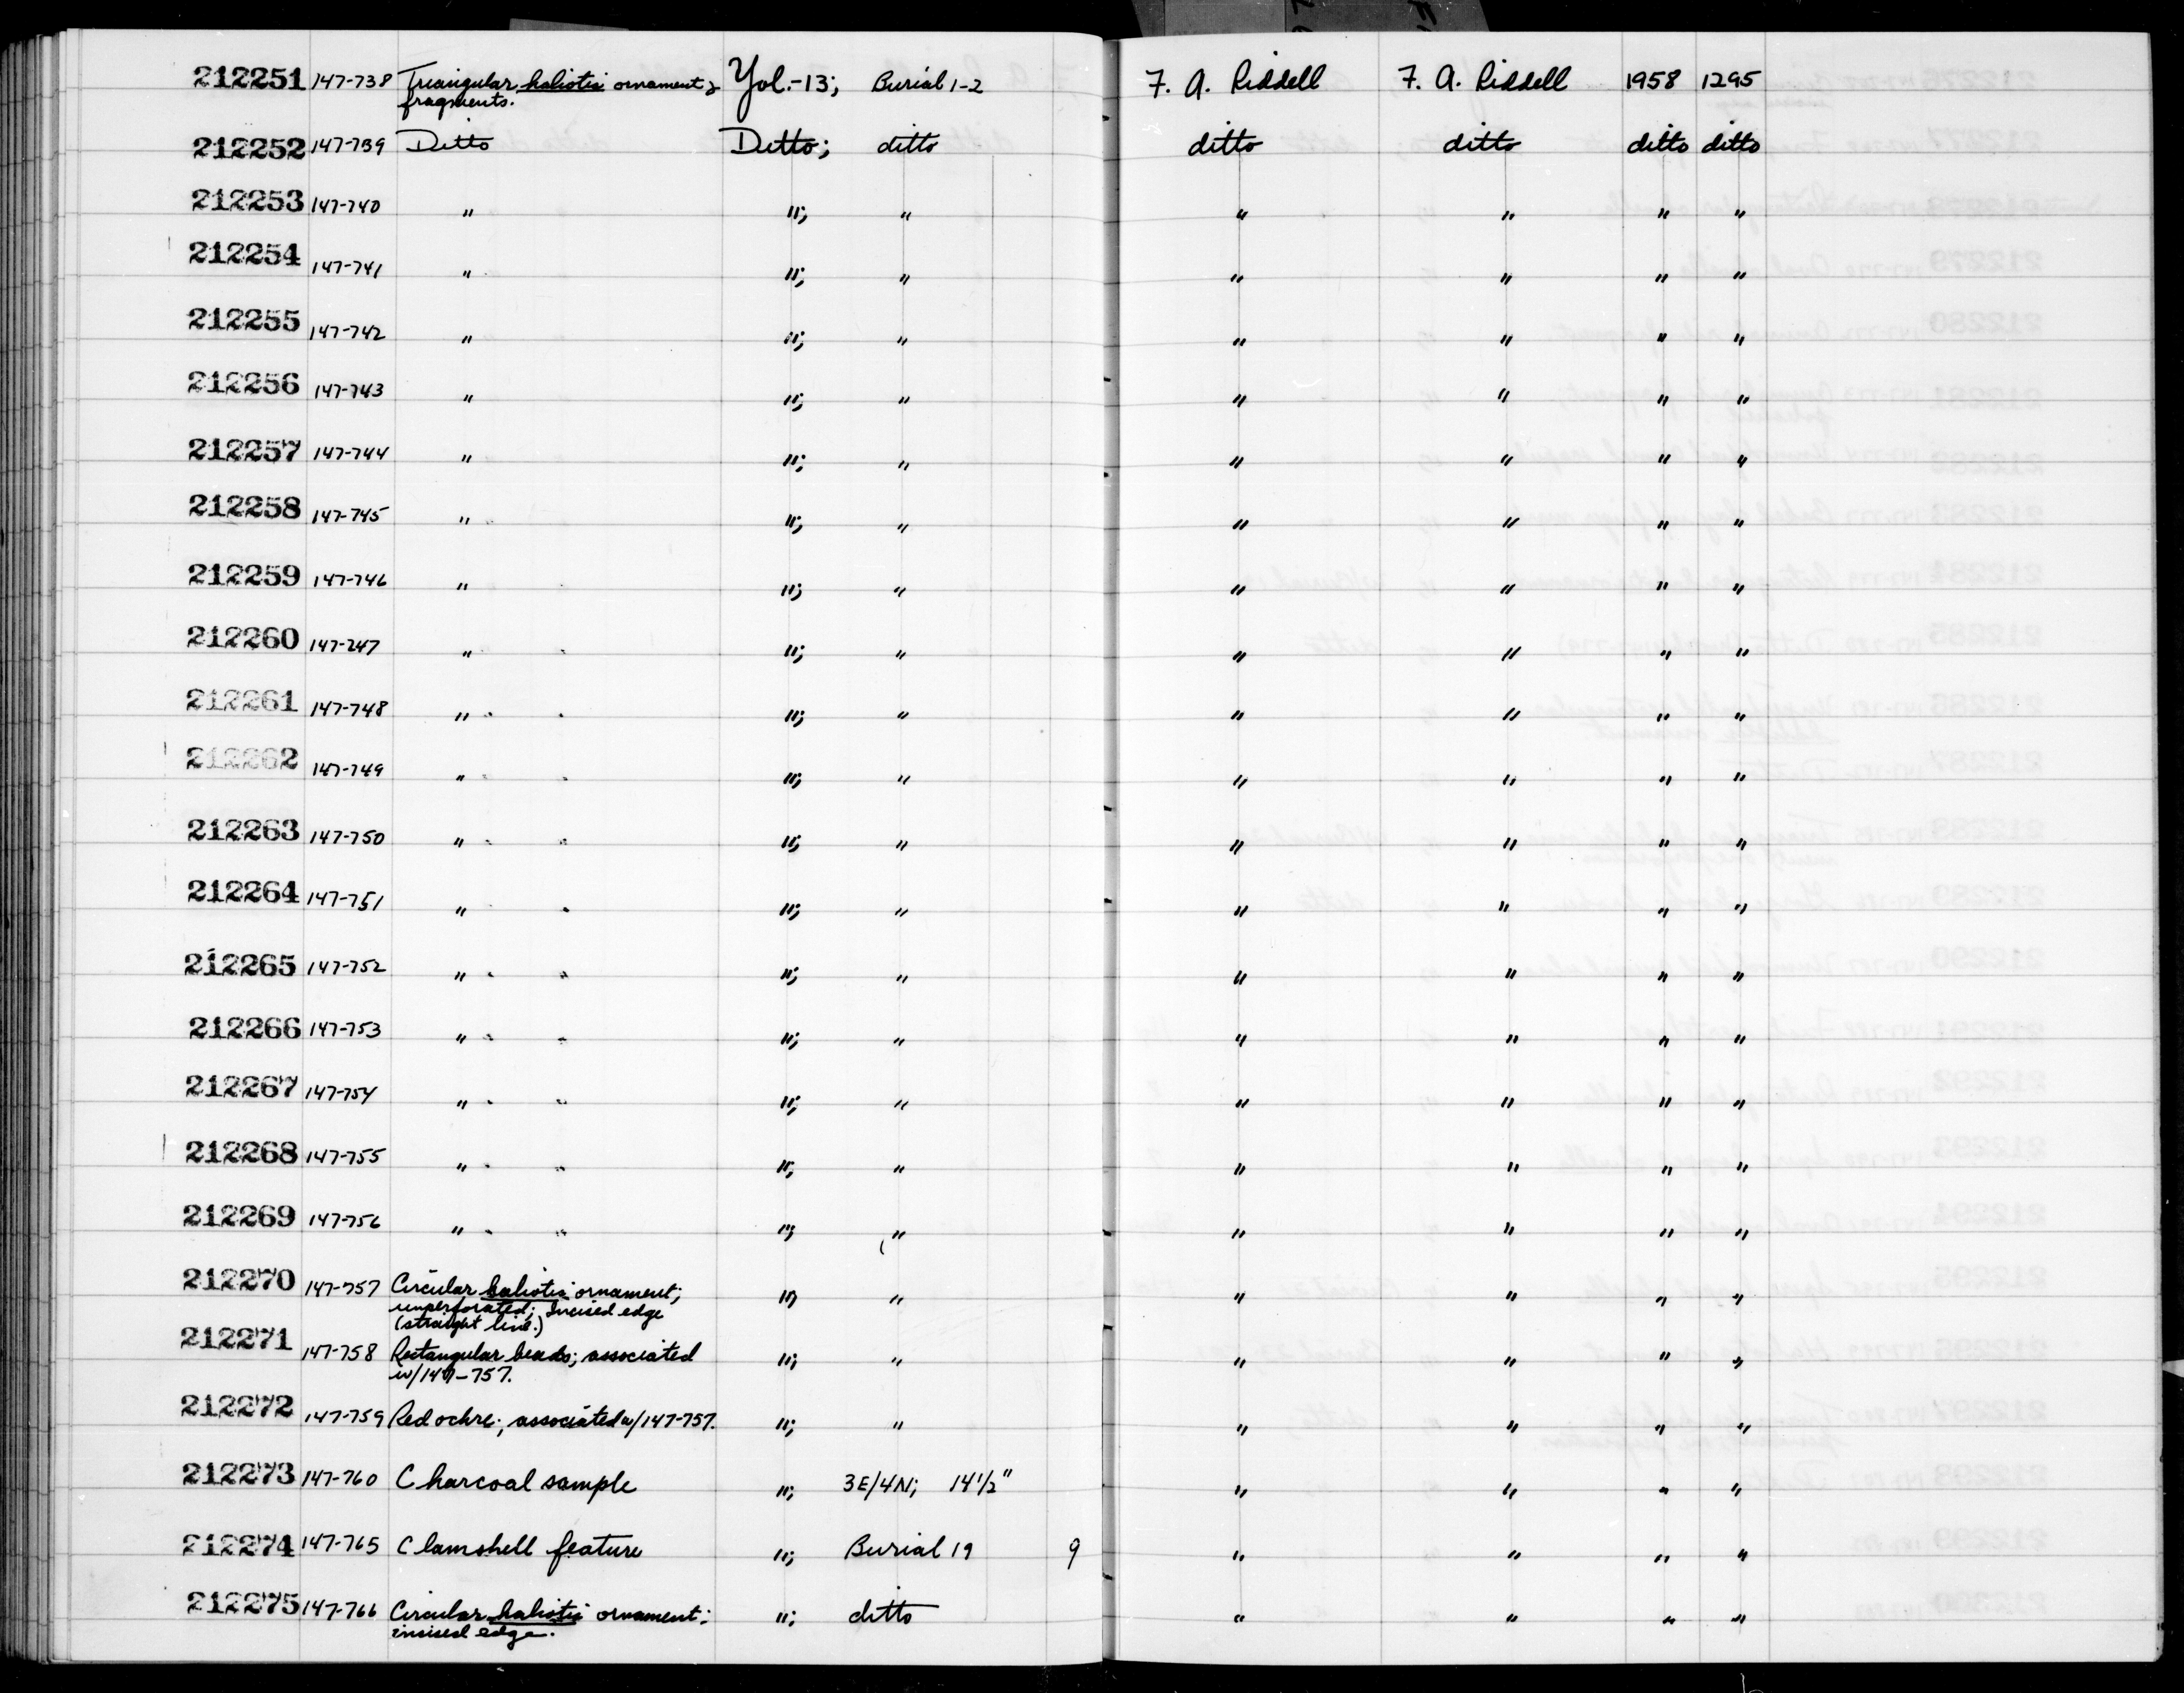 212251 147-738 Triangular haliotis ornament & Yol.-13; Burial 1-2 F. A. Riddell F. A. Riddell 1958 1295
fragments.
212252 147-739 Ditto Ditto; ditto ditto ditto ditto ditto
212253 147-740 " "; " " " " "
212254 147-741 " "; " " " " "
212255 147-742 " "; " " " " "
212256 147-743 " "; " " " " "
212257 147-744 " "; " " " " "
212258 147-745 " "; " " " " "
212259 147-746 " "; " " " " "
212260 147-247 " "; " " " " "
212261 147-748 " "; " " " " "
212262 147-749 " "; " " " " "
212263 147-750 " "; " " " " "
212264 147-751 " "; " " " " "
212265 147-752 " "; " " " " "
212266 147-753 " "; " " " " "
212267 147-754 " "; " " " " "
212268 147-755 " "; " " " " "
212269 147-756 " "; " " " " "
212270 147-757 Circular haliotis ornament; "; " " " " "
unperforated; Incised edge
(straight line.)
212271 147-758 Rectangular beads; associated "; " " " " "
w/147-757.
212272 147-759 Red ochre; associated w/147-757. "; " " " " "
212273 147-760 Charcoal sample "; 3E/4N; 14 1/2" " " " "
212274 147-765 Clamshell feature "; Burial 19 9 " " " "
212275 147-766 Circular haliotis ornament; "; ditto " " " "
incised edge.